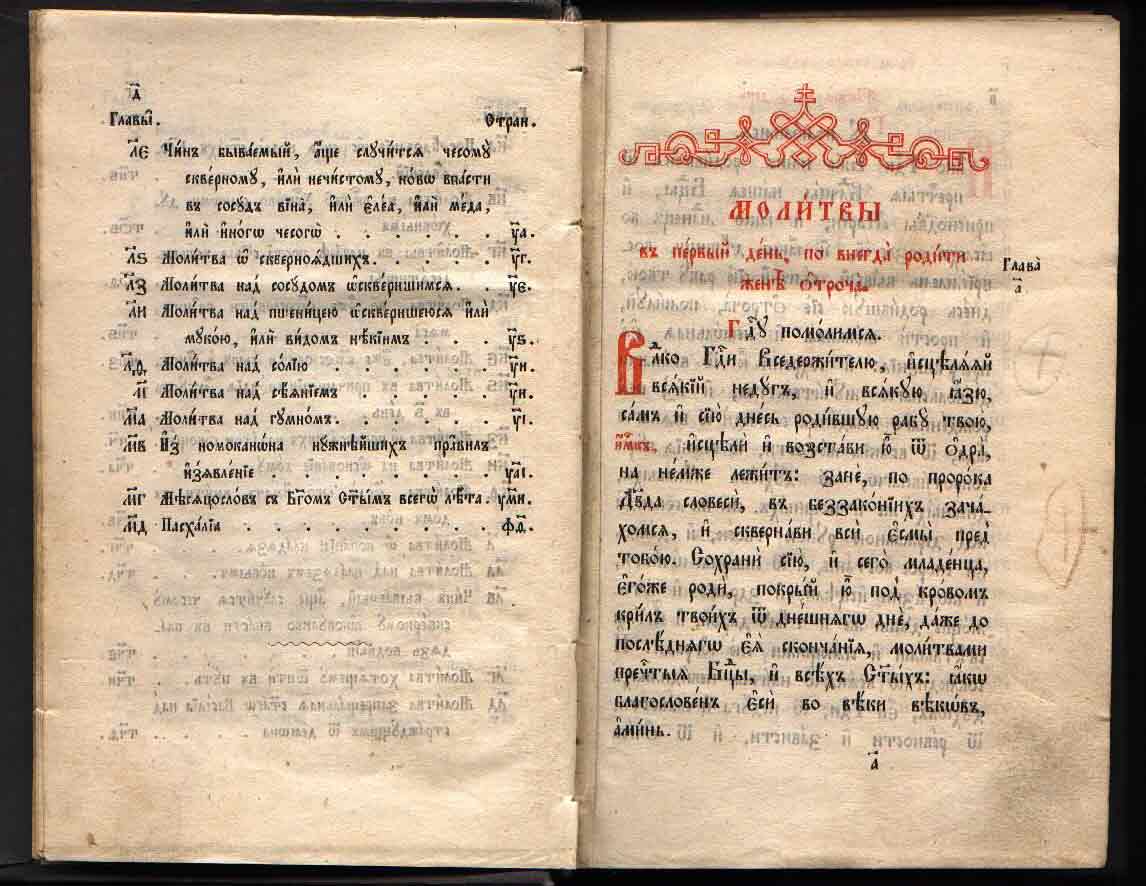 д҃
Главы̀. Стран.
л҃е Чи́нъ быва́емый, а́ще случи́тся чесому̀
скве́рному, и҆лѝ нечи́стому, но́вѡ впа́сти
въ сосу́дъ вїна̀, и҆лѝ є҆ле́а, и҆лѝ ме́да,
и҆лѝ и҆но́гѡ чесогѡ̀ . . . . . . . у҃а.
л҃ѕ Моли́тва ѡ҆ скверноѧ́дшихъ. . . . . . у҃г.
л҃з Моли́тва над̾ сосу́домъ ѡ҆скве́ршимся. . . у҃є.
л҃и Моли́тва над̾ пшени́цею ѡ҆скве́ршеюся и҆лѝ
муко́ю, и҆лѝ ви́домъ нѣ́кіимъ . . . . у҃ѕ.
л҃ѳ Моли́тва над̾ со́лїю . . . . . . . у҃и.
м҃ Моли́тва над̾ сѣ́ѧнїемъ . . . . . . у҃и.
м҃а Моли́тва над̾ гумно́мъ. . . . . . . у҃і.
м҃в И҆з̾ номокано́на нужнѣ́йшихъ пра́вилъ
и҆з̾ѧвле́нїе . . . . . . . . . у҃аі.
м҃г Мѣсяцосло́въ с̾ Бг҃омъ Ст҃ы́мъ всегѡ̀ лѣ́та. у҃ми.
м҃д Пасха́лїа . . . . . . . . . . ф҃ѳ.
МОЛИ́ТВЫ
въ пе́рвый де́нь, по внегда̀ роди́ти
женѣ̀ ѻ҆троча̀.
Глава̀
а҃
Гдⷭ҇у помо́лимся.
Влⷣко Гдⷭ҇и Вседержи́телю, и҆сцѣлѧ́ѧй
всѧ́кїй неду́гъ, и҆ всѧ́кую ѧ҆́зю,
са́мъ и҆ сїю̀ дне́сь роди́вшую рабу̀ твою̀,
и҆́мⷬ҇къ, и҆сцѣлѝ и҆ возста́ви ю҆̀ ѿ ѻ҆дра̀,
на не́мже лежи́тъ: занѐ, по проро́ка
Дв҃да словесѝ, въ беззако́нїихъ зача́-
хомся, и҆ скверна́ви всѝ є҆смы̀ пред̾
тобо́ю. Сохранѝ сїю̀, и҆ сего̀ младе́нца,
є҆го́же родѝ, покры́й ю҆̀ под̾ кро́вомъ
кри́лъ твои́хъ ѿ дне́шнягѡ днѐ, да́же до
послѣ́днягѡ є҆ѧ̀ сконча́нїя, моли́твами
пречⷭ҇тыя Бцⷣы, и҆ всѣ́хъ Ст҃ы́хъ: ѧ҆́кѡ
благослове́нъ є҆сѝ во вѣ́ки вѣкѡ́въ,
а҆ми́нь.
а҃